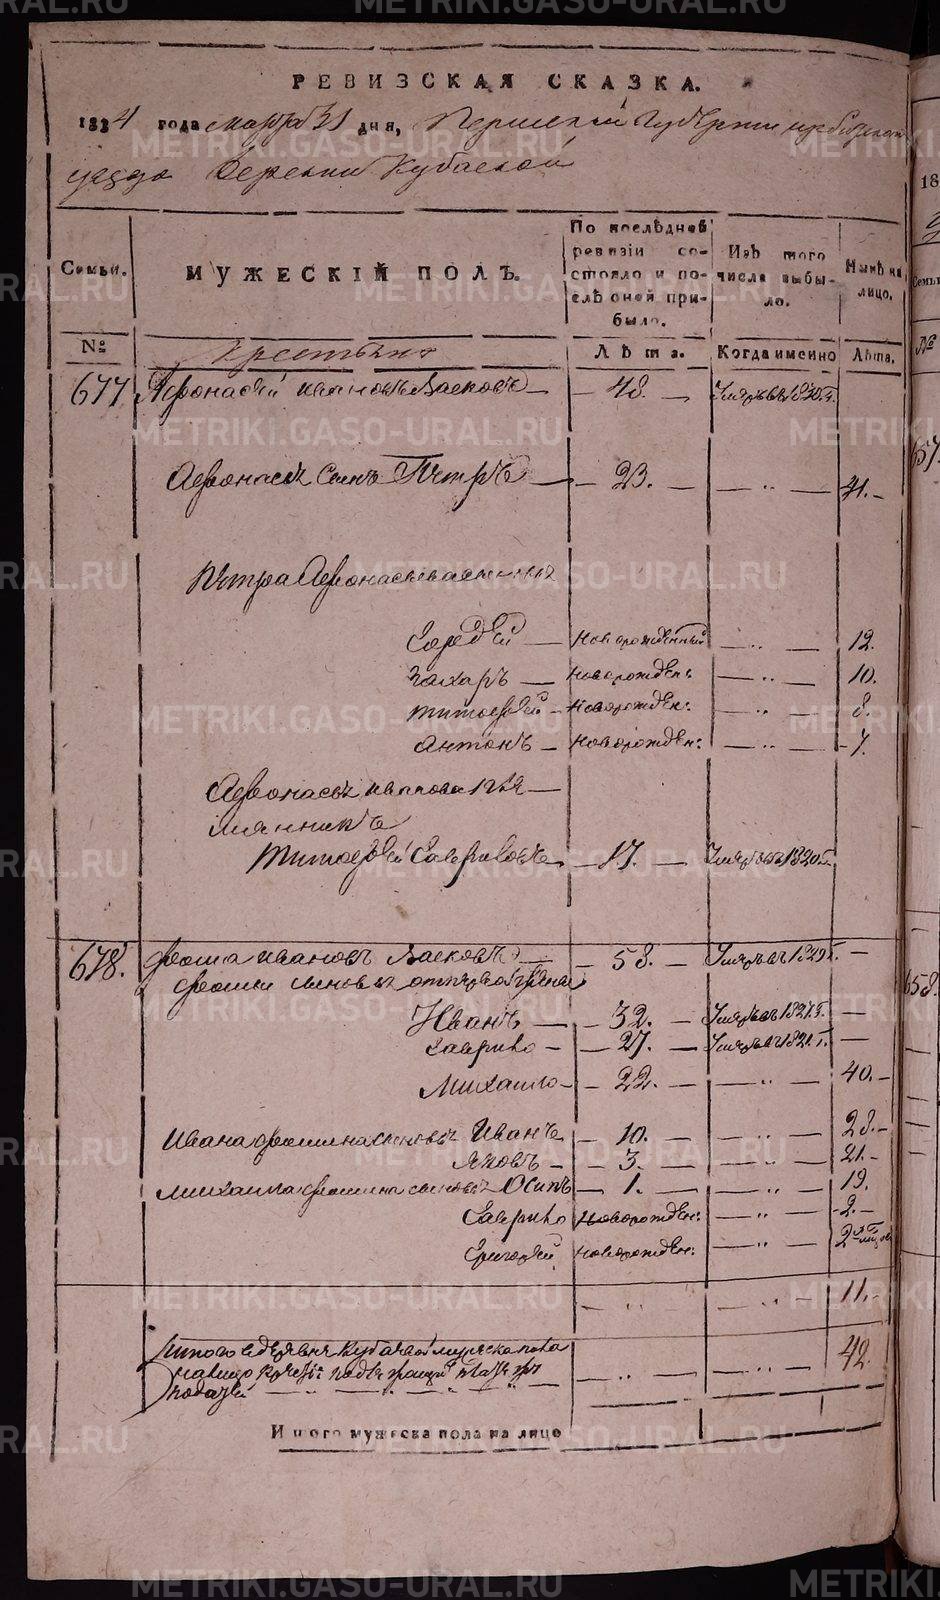 METRIKI.GASO-URAL.RU
РЕВИЗСКАЯ СКАЗКА.
1834 года марта 31 дня, Пермской Губернiи Ирбитскаго
уезда Деревни Кубаевой
Семьи.
МУЖЕСКІЙ ПОЛЪ.
По послѣдней ревизіи состояло и послѣ оней прибыло.
Изъ того числа выбыло.
Нынѣ на лицо.
№
Крестьяне
Лѣта.
Когда именно
Лѣта.
677. Афонасей Ивановъ Васковъ — 48. — Умръ въ 1820 г.
Афонасья сынъ Петръ — 23. — — „ — 41. —
Петра Афонасьева сыновья
Сергей — Новорожденный — „ — 12.
Захаръ — Новорожден: — „ — 10.
Тимофей — Новорожден: — „ — 8.
Антонъ — Новорожден: — „ — 7.
Афонасья Иванова пле—
мянникъ
Тимофей Гавриловъ — 17. — Умръ въ 1820 г.
678. Фома Ивановъ Васковъ — 58. — Умръ въ 1829 г. —
Фомы сыновья от первой жены
Иванъ — 32. — Умръ въ 1827 г. —
Гаврило — 27. — Умръ въ 1821 г. —
Михайло — 22. — — „ — 40. —
Ивана Фомина сыновья Иванъ — 10. — — „ — 28. —
Яковъ — 3. — — „ — 21. —
Михайла Фомина сыновья Осипъ — 1. — — „ — 19.
Гаврило Новорожден: — „ — 2. —
Григорей Новорожден: — „ — 2
— „ — — „ — 11. —
Итого в деревне Кубаевой мужеска пола
налицо
податей — „ — — „ — 42.
Итого мужеска пола на лицо
18
Семьи
№
657
658.